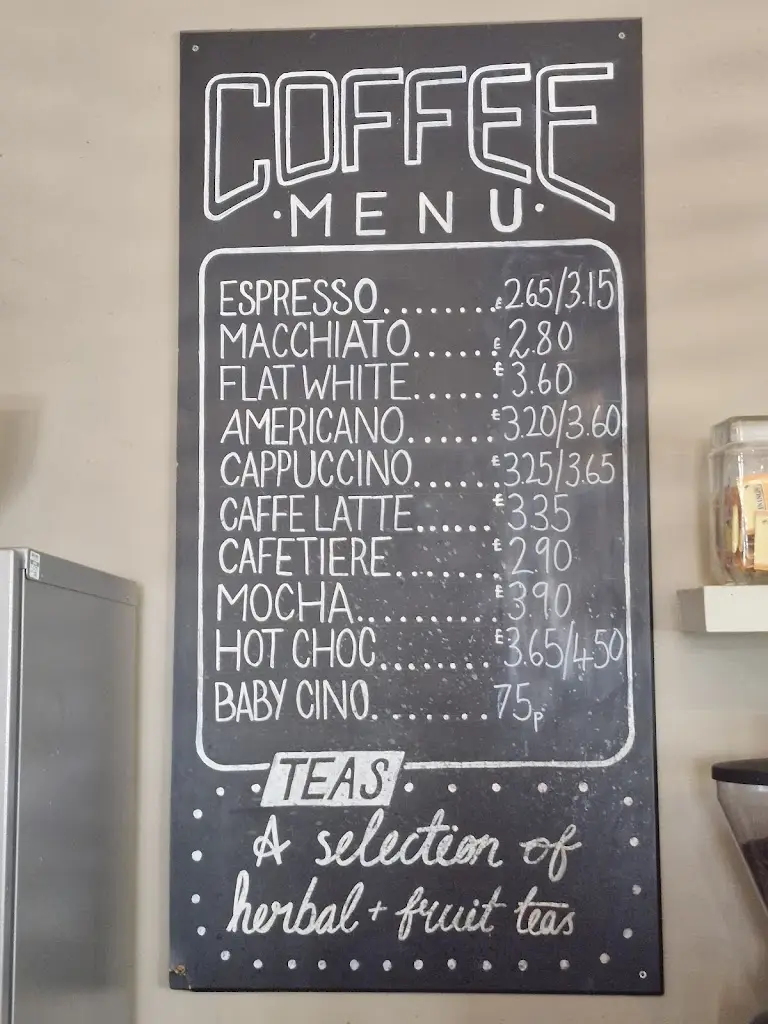 COFFEE
·MENU·
ESPRESSO........£265/3.15
MACCHIATO......£2.80
FLAT WHITE......£3.60
AMERICANO......£3.20/3.60
CAPPUCCINO......£3.25/3.65
CAFFE LATTE......£335
CAFETIERE.......£290
MOCHA..........£390
HOT CHOC........£3.65/4.50
BABY CINO.......75p
TEAS
A selection of
herbal + fruit teas